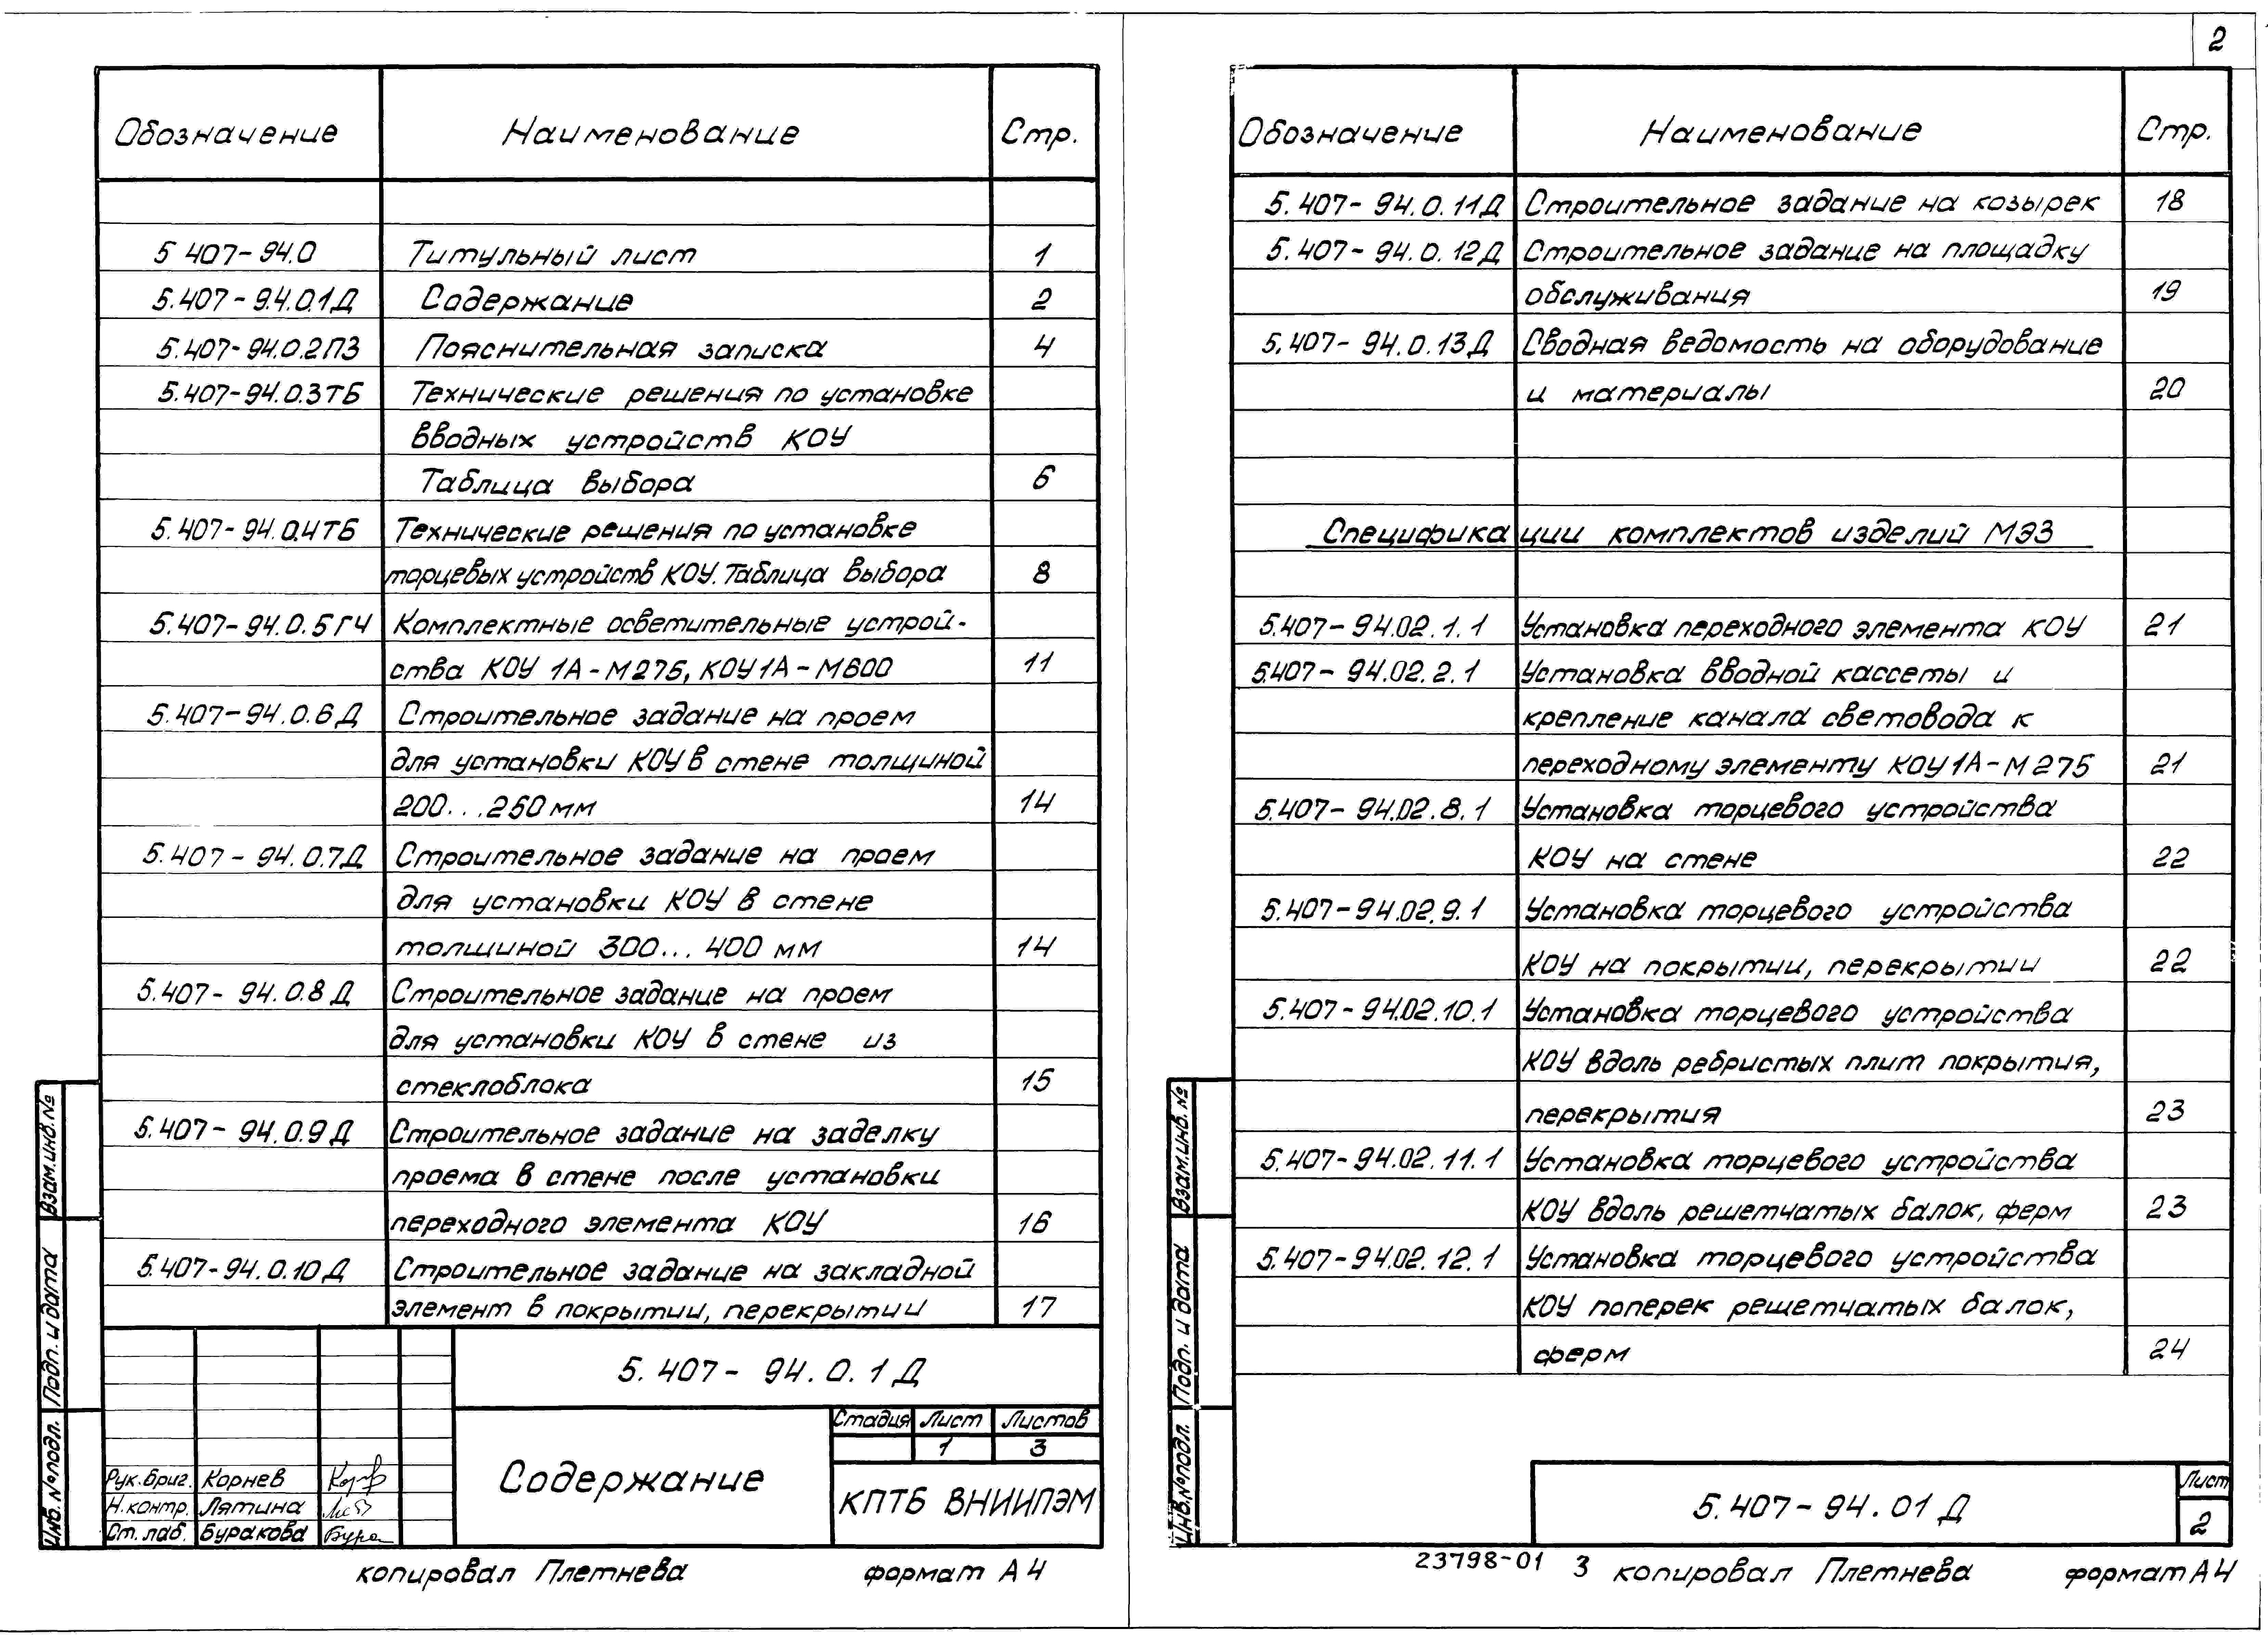 2
Обозначение Наименование Стр.
5 407-94.0 Титульный лист 1
5.407-94.0.1Д Содержание 2
5.407-94.0.2ПЗ Пояснительная записка 4
5.407-94.0.3ТБ Технические решения по установке
вводных устройств КОУ
Таблица выбора 6
5.407-94.0.4ТБ Технические решения по установке
торцевых устройств КОУ. Таблица выбора 8
5.407-94.0.5ГЧ Комплектные осветительные устрой-
ства КОУ 1А-М275, КОУ1А-М600 11
5.407-94.0.6Д Строительное задание на проем
для установки КОУ в стене толщиной
200...250 мм 14
5.407-94.0.7Д Строительное задание на проем
для установки КОУ в стене
толщиной 300...400 мм 14
5.407-94.0.8Д Строительное задание на проем
для установки КОУ в стене из
стеклоблока 15
5.407-94.0.9Д Строительное задание на заделку
проема в стене после установки
переходного элемента КОУ 16
5.407-94.0.10Д Строительное задание на закладной
элемент в покрытии, перекрытии 17
5.407-94.0.1Д
Стадия Лист Листов
1 3
Содержание
КПТБ ВНИИПЭМ
Рук.бриг. Корнев
Н.контр. Лятина
Ст.лаб. Буракова
Взам.инв.№
Подп. и дата
Инв.№подл.
копировал Плетнева формат А4
Обозначение Наименование Стр.
5.407-94.0.11Д Строительное задание на козырек 18
5.407-94.0.12Д Строительное задание на площадку
обслуживания 19
5.407-94.0.13Д Сводная ведомость на оборудование
и материалы 20
Спецификации комплектов изделий МЭЗ
5.407-94.02.1.1 Установка переходного элемента КОУ 21
5.407-94.02.2.1 Установка вводной кассеты и
крепление канала световода к
переходному элементу КОУ1А-М275 21
5.407-94.02.8.1 Установка торцевого устройства
КОУ на стене 22
5.407-94.02.9.1 Установка торцевого устройства
КОУ на покрытии, перекрытии 22
5.407-94.02.10.1 Установка торцевого устройства
КОУ вдоль ребристых плит покрытия,
перекрытия 23
5.407-94.02.11.1 Установка торцевого устройства
КОУ вдоль решетчатых балок, ферм 23
5.407-94.02.12.1 Установка торцевого устройства
КОУ поперек решетчатых балок,
ферм 24
Взам.инв.№
Подп. и дата
Инв.№подл.
5.407-94.01Д
Лист
2
23798-01 3 копировал Плетнева формат А4